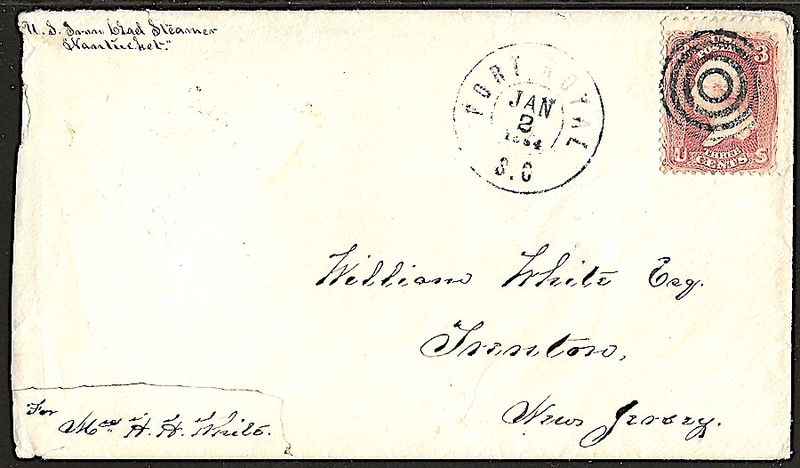 U. S. Iron Clad Steamer
"Nantucket."
PORT ROYAL
JAN
2
1864
S.C
U. S. POSTAGE
3
THREE
U CENTS S
William White Esq.
Trenton,
New Jersey.
For
Mrs H. H. White.